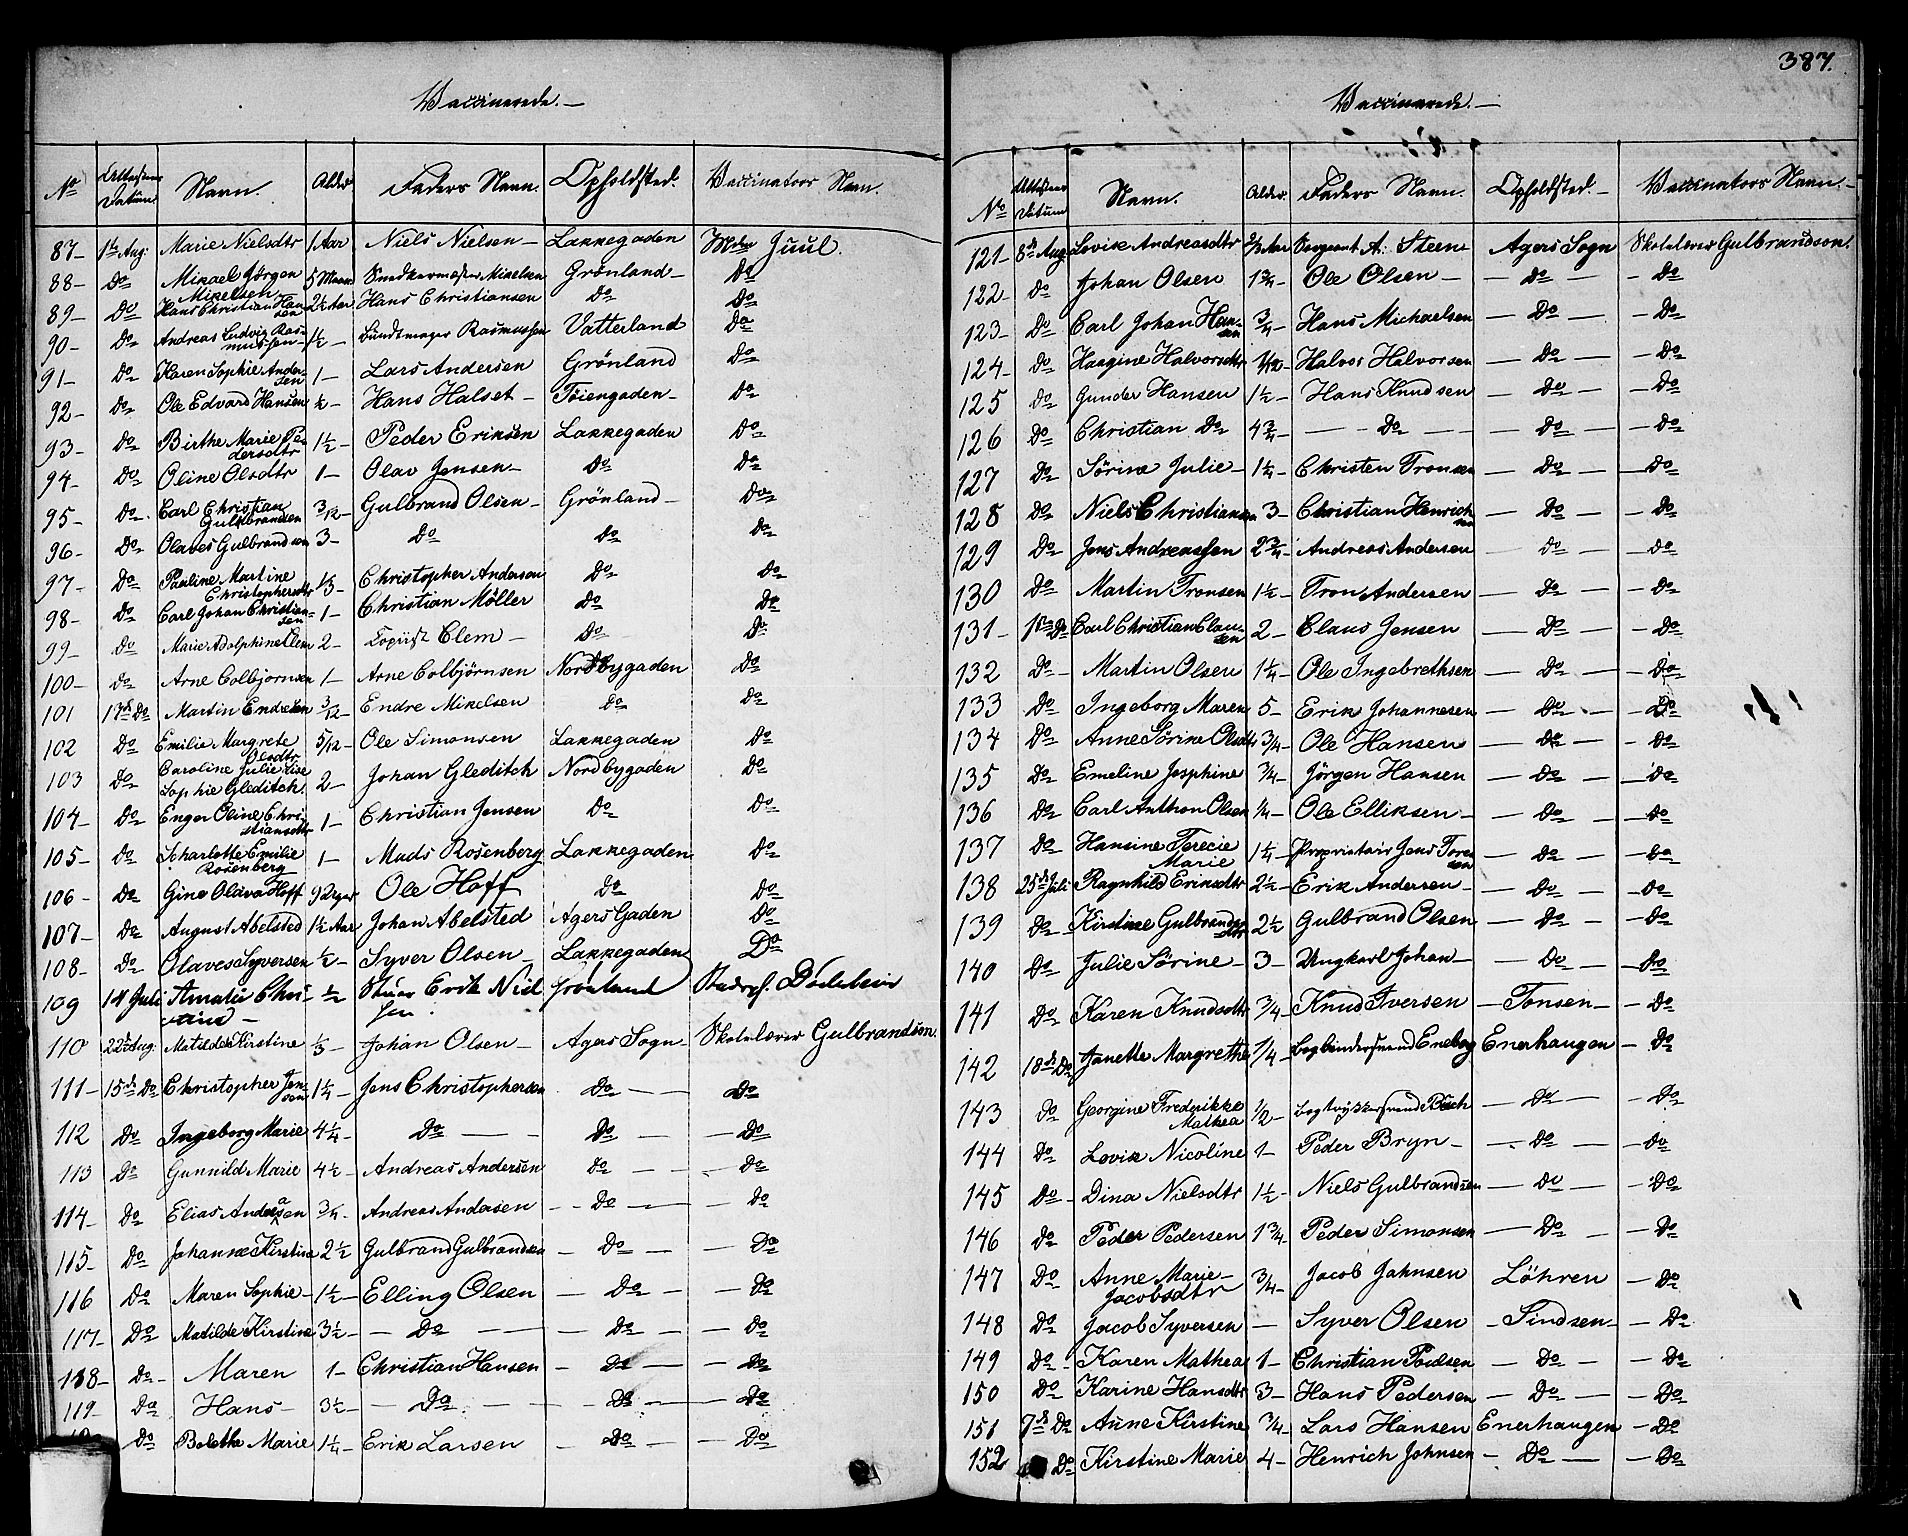 387.
Vaccinerede. —
No Attestens Datum Navn. Alder Faders Navn. Opholdsted. Vaccinators Navn.
87 — 11te Aug: Marie Nielsdtr 1 Aar Niels Nielsen — Lakkegaden Mdm Juul.
88 — Do Mikael Jörgen Mikelsen 5 Maan Snedkermester Mikelsen Grönland — Do
89 — Do Hans Christian Hansen 2½ Aar Hans Christiansen Do Do
90 — Do Andreas Ludvig Rasmussen — 1½ — Bundtmager Rasmussen Vatterland Do
91 — Do Karen Sophie Andersen 1 — Lars Andersen Grönland Do
92 — Do Ole Edvard Hansen ½ — Hans Halset — Töiengaden — Do
93 — Do Birthe Marie Pedersdtr 1½ — Peder Eriksen Lakkegaden Do
94 — Do Oline Olsdtr 1 — Olav Jensen — Do Do
95 — Do Carl Christian Gulbrandsen 3/12 — Gulbrand Olsen — Grönland — Do
96 — Do Olaves Gulbrandsen 3 — Do Do Do
97 — Do Pauline Martine Christophersdtr ⅓ — Christopher Andersen Do Do
98 — Do Carl Johan Christiansen 1 — Christian Möller Do Do
99 — Do Marie Adolphine Clem 2 — Copiist Clem — Do Do
100 — Do Arne Colbjornsen 1 — Arne Colbjörnsen Nordbygaden Do
101 13de Do Martin Endresen 3/12 — Endre Mikelsen Do Do
102 Do Emilie Margrete Olsdtr 5/12 — Ole Simonsen Lakkegaden Do
103 Do Caroline Julie Lise Sophie Gleditch 2 — Johan Gleditch Nordbygaden Do
104 — Do Enger Oline Christiansdtr 1 — Christian Jensen Do Do
105 — Do Scharlotte Emilie Rosenberg 1 — Mads Rosenberg Lakkegaden Do
106 — Do Gine Olava Hoff 9 Uger Ole Hoff Do Do
107 — Do August Abelsted 1½ Aar Johan Abelsted Agers Gaden Do
108 — Do Olaves Syversen ½ — Syver Olsen — Lakkegaden Do
109 14 Juli Amalie Christine — ½ Stuer Erik Nielsen. Grönland Stadsph. Döderlein
110 22de Aug: Matilde Kirstine ⅓ — Johan Olsen — Agers Sogn Skolelærer Gulbrandsen.
111 — 15de Do Christopher Jensen 1¼ — Jens Christophersen Do — Do
112 Do Ingeborg Marie 4¼ — Do — Do — Do
113 Do Gunnild Marie 4½ — Andreas Andersen Do — Do
114 — Do Elias Andersen ¾ — Andreas Andersen — Do — Do
115 — Do Johanne Kirstine 2½ Gulbrand Gulbrandsen — Do — Do
116 Do Maren Sophie — 1½ — Elling Olsen — Do — Do
117 — Do Matilde Kirstine 3½ — Do — Do — Do
118 — Do Maren 1 — Christian Hansen — Do — Do
119 — Do Hans — 3½ — Do — Do — Do
Do Bolethe Marie 1¼ — Erik Larsen — Do — Do
Vaccinerede. —
No Attestens Datum Navn. Alder. Faders Navn. Opholdsted. — Vaccinators Navn. —
121 — 8de Aug: Lovise Andreasdtr Aar Sergeant A. Steen Agers Sogn Skolelærer Gulbrandsen.
122 — Do Johan Olsen 1¾ — Ole Olsen — Do — Do
123 — Do Carl Johan Hansen ¾ — Hans Michaelsen — Do — Do
124 — Do Haagine Halvorsdtr 1/12 — Halvor Halvorsen — Do — Do
125 Do Gunder Hansen 1½ — Hans Knudsen — Do — Do
126 Do Christian Do 4¾ — Do — Do — Do
127 Do Sörine Julie — 1¼ — Christen Tronsen — Do — Do
128 Do Niels Christiansen 3 — Christian Henrichsen — Do — Do
129 Do Jens Andreassen 2¾ — Andreas Andersen — Do — Do
130 Do Martin Tronsen 1½ — Tron Andersen — Do — Do
131 — 15de Do Carl Christian Clausen 2 — Claus Jensen — Do — Do
132 Do — Martin Olsen 1¼ — Ole Ingebrethsen — Do — Do
133 Do Ingeborg Maren 5 — Erik Johannesen — Do — Do
134 Do Anne Sörine Olsdtr ¾ — Ole Hansen — Do — Do
135 Do Emeline Josphine ¾ — Jörgen Hansen — Do — Do
136 Do Carl Anthon Olsen ¼ — Ole Elliksen — Do — Do
137 Do Hansine Terecie Marie 1¼ — Proprietair Jens Toresen — Do — Do
138 25de Juli Ragnhild Eriksdtr 2½ — Erik Andersen — Do — Do
139 Do Kirstine Gulbrandsdtr 2½ Gulbrand Olsen — Do — Do
140 Do Julie Sörine — 3 — Ungkarl Johan — Do — Do
141 Do Karen Knudsdtr ¾ — Knud Iversen — Tonsen — Do
142 18de Do Janette Margrethe ¼ — Bogbindersvend Eneboe Enerhaugen — Do
143 Do Georgine Frederikke Mathea ½ — Bogtrykkersvend Bech — Do — Do
144 Do Lovise Nicoline 1 — Peder Bryn — Do — Do
145 Do — Dina Nielsdtr 1½ — Niels Gulbrandsen — Do — Do
146 Do Peder Pedersen 1¾ — Peder Simonsen — Do — Do
147 Do Anne Marie — Jacobsdtr ¾ — Jacob Jahnsen Löhren — Do
148 Do Jacob Syversen — Syver Olsen — Sindsen — Do
149 Do — Karen Mathea 1 — Christian Poulsen — Do — Do
150 Do Karine Hansdtr 3 — Hans Pedersen — Do — Do
151 7de Do Anne Kirstine ¾ — Lars Hansen Enerhaugen — Do
152 Do Kirstine Marie 4 — Henrich Johnsen — Do — Do